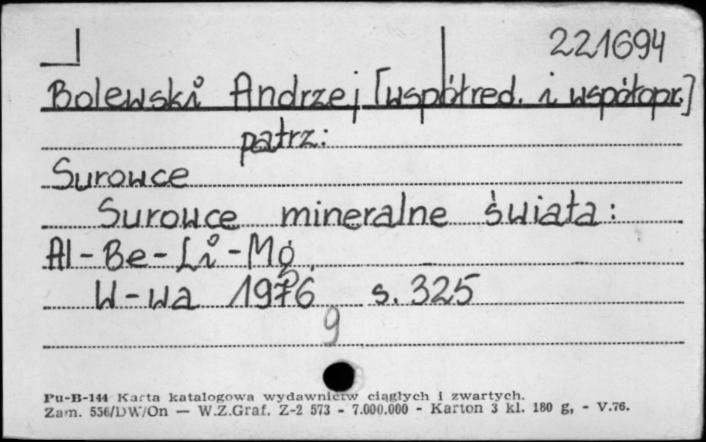 221694
Bolewski Andrzej [współred. i współopr.]
patrz:
Surowce
Surowce mineralne świata:
Al-Be-Li-Mg.
W-wa 1976 s. 325
9
Pu-B-144 Karta katalogowa wydawnictw ciągłych i zwartych.
Zam. 556/DW/On — W.Z.Graf. Z-2 573 - 7.000.000 - Karton 3 kl. 180 g, - V.76.